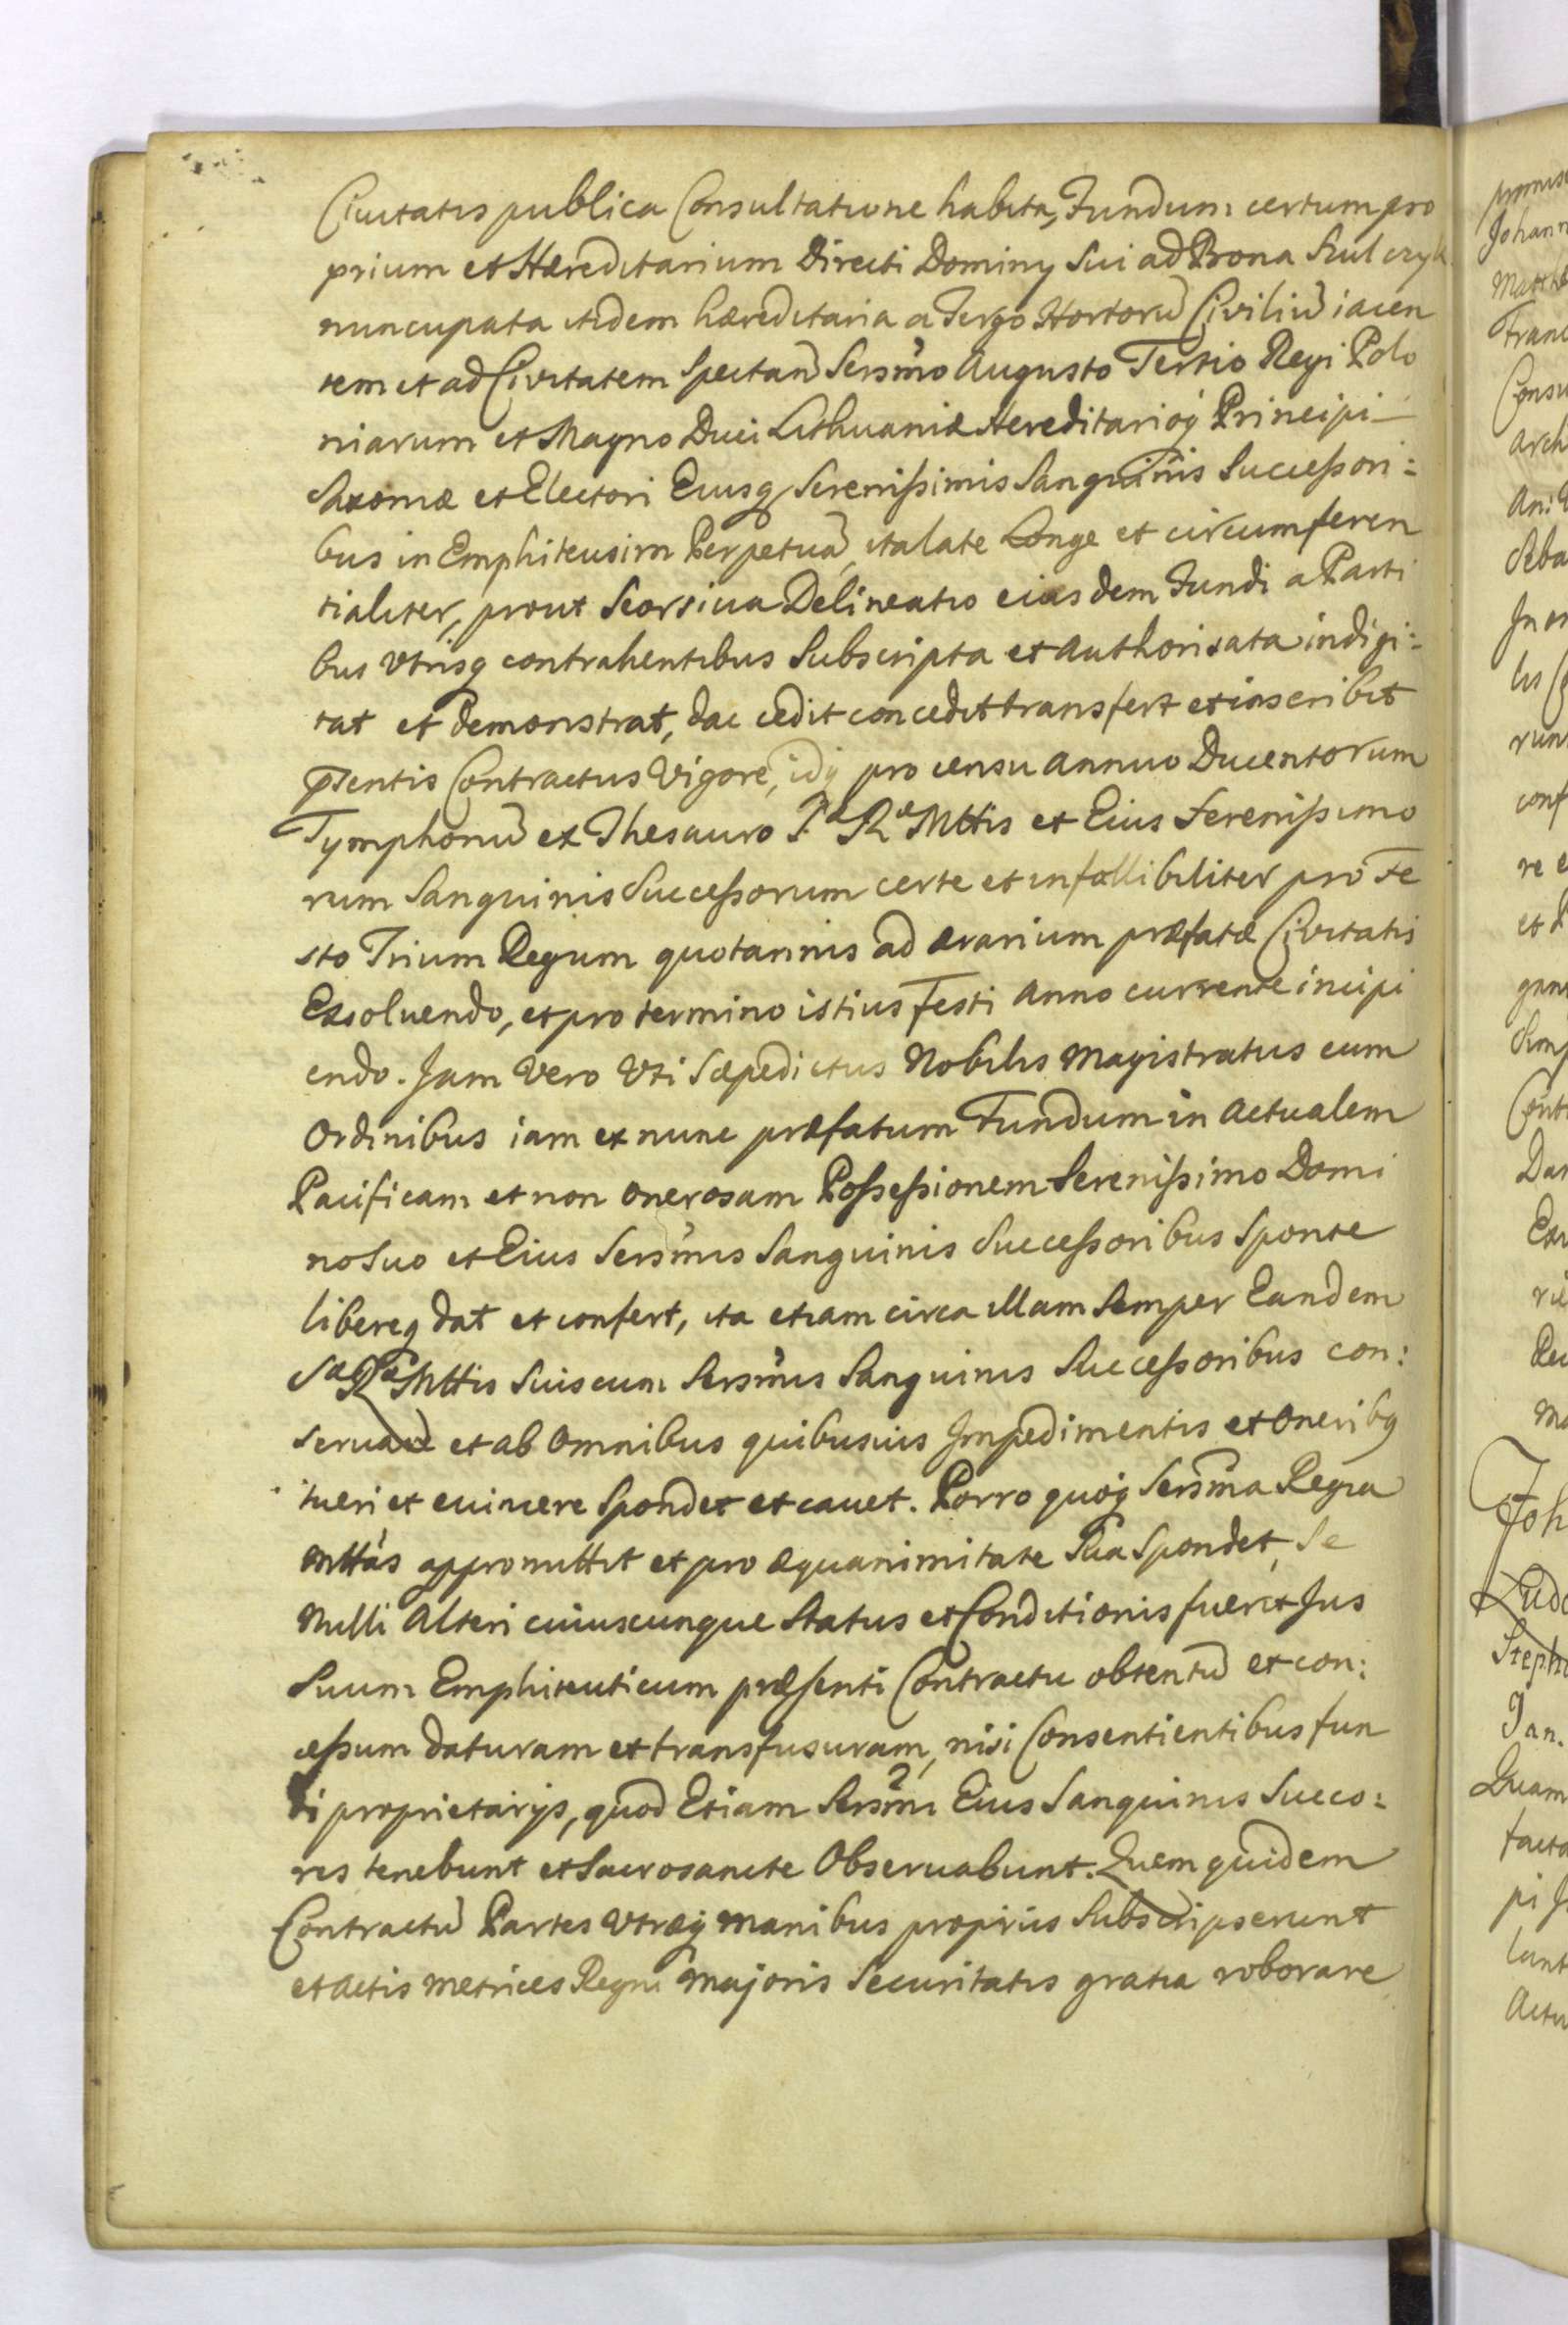 Civitatis publica Consultatione habita, Fundum certum pro
prium et Hæreditarium Directi Dominy Sui ad Prona
nuncupata itidem hæreditaria a Tergo Hortorũ Civiliũ iacen
tem et ad Civitatem Spectañ Sersm̃o Augusto Tertio Regi Polo
niarum et Magno Duci Lithuaniæ Hereditarioq̃ Principi
Saxoniæ et Electori Eiusq Serenissimis Sanguinis Successori:
bus in Emphiteusim Perpetuã, ita late Longe et circumferen
tialiter, prout Seorsiva Delineatio eiusdem Fundi a Parti
bus Vtrisq contrahentibus Subscripta et Authorisata indigi:
tat et Demonstrat, dat cedit concedit transfert et inscribit
p̃sentis Contractus Vigore, idq pro censu annuo Ducentorum
Tymphonũ ex Thesauro S.æ R.æ Mttis et Eius Serenissimo
rum Sanguinis Successorum certe et infallibiliter pro Fe
sto Trium Regum quotannis ad ærarium præfatæ Civitatis
Exsoluendo, et pro termino istius Festi Anno currente incipi
endo. Jam Vero Vti Sæpedictus Nobilis Magistratus cum
Ordinibus iam ex nunc præfatum Fundum in Actualem
Pacificam et non onerosam Possessionem Serenissimo Domi
no Suo et Eius Sersm̃is Sanguinis Successoribus Sponte
libereq dat et confert, ita etiam circa illam Semper Eandem
Sæ Ræ Mttis Suis cum Sersm̃is Sanguinis Successoribus con:
servare et ab Omnibus quibusvis Impedimentis et Oneribq
tueri et euincere Spondet et cauet. Porro quoq̃ Sersm̃a Regia
Mttãs appromittit et pro æquanimitate Sua Spondet, Se
Nulli Alteri cuiuscunque Status et Conditionis fuerit Jus
Suum Emphiteuticum præsenti Contractu obtentũ et con:
cessum daturam et transfusuram, nisi Consentientibus fun
di proprietarijs, quod Etiam Sersm̃i Eius Sanguinis Succo:
res tenebunt et Sacrosancte Observabunt. Quem quidem
Contractũ Partes Vtræq̃ manibus proprijs Subscripserunt
et Actis Metrices Regni Majoris Securitatis gratia roborare
Johann
Consu
Seba